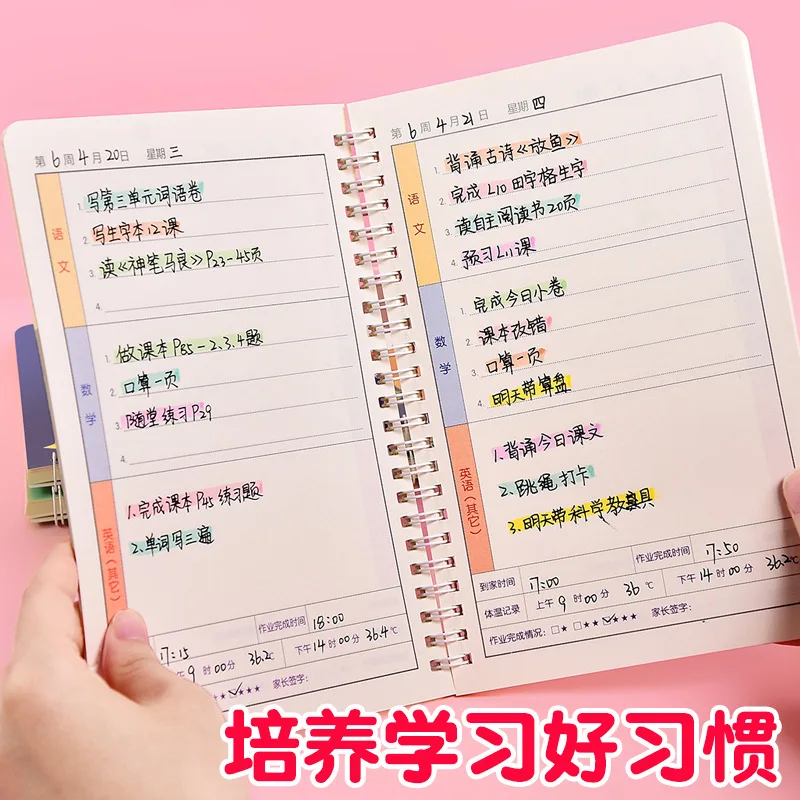 第6周4月20日 星期三
语文
1. 写第三单元词语卷
2. 写生字本12课
3. 读《神笔马良》P23-45页
4.
数学
1. 做课本P85-2.3.4题
2. 口算一页
3. 随堂练习P29
4.
英语(其它)
1.完成课本P45练习题
2.单词写三遍
17:15 作业完成时间 18:00
9时00分 36.2℃ 下午14时00分 36.4℃
★✓★★★ 家长签字:
第6周4月21日 星期四
语文
1. 背诵古诗《放鱼》
2. 完成L10田字格生字
3. 读自主阅读书20页
4. 预习L11课
数学
1. 完成今日小卷
2. 课本改错
3. 口算一页
4. 明天带算盘
英语(其它)
1.背诵今日课文
2.跳绳打卡
3.明天带科学教具
到家时间 17:00 作业完成时间 17:50
体温记录 上午9时00分 36℃ 下午14时00分 36.2℃
作业完成情况:□★ □★★ ✓★★★ 家长签字:
培养学习好习惯